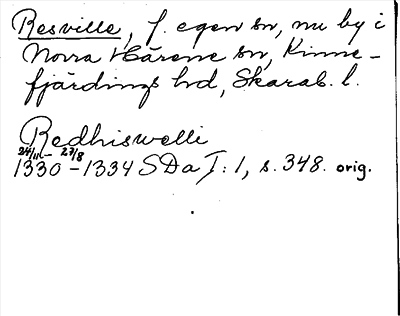 Resville, f. egen sn, nu by i
Norra Härene sn, Kinne-
fjärdings hd, Skarab. l.
Redhiswelli
24/11– 27/8
1330–1334 SDa I: 1, s. 348. orig.